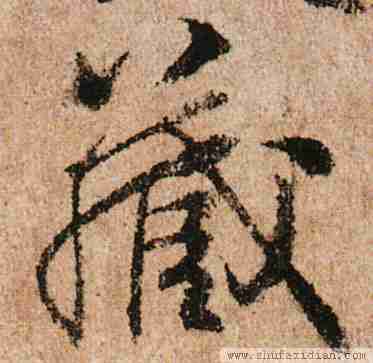 藏
www.shufazidian.com